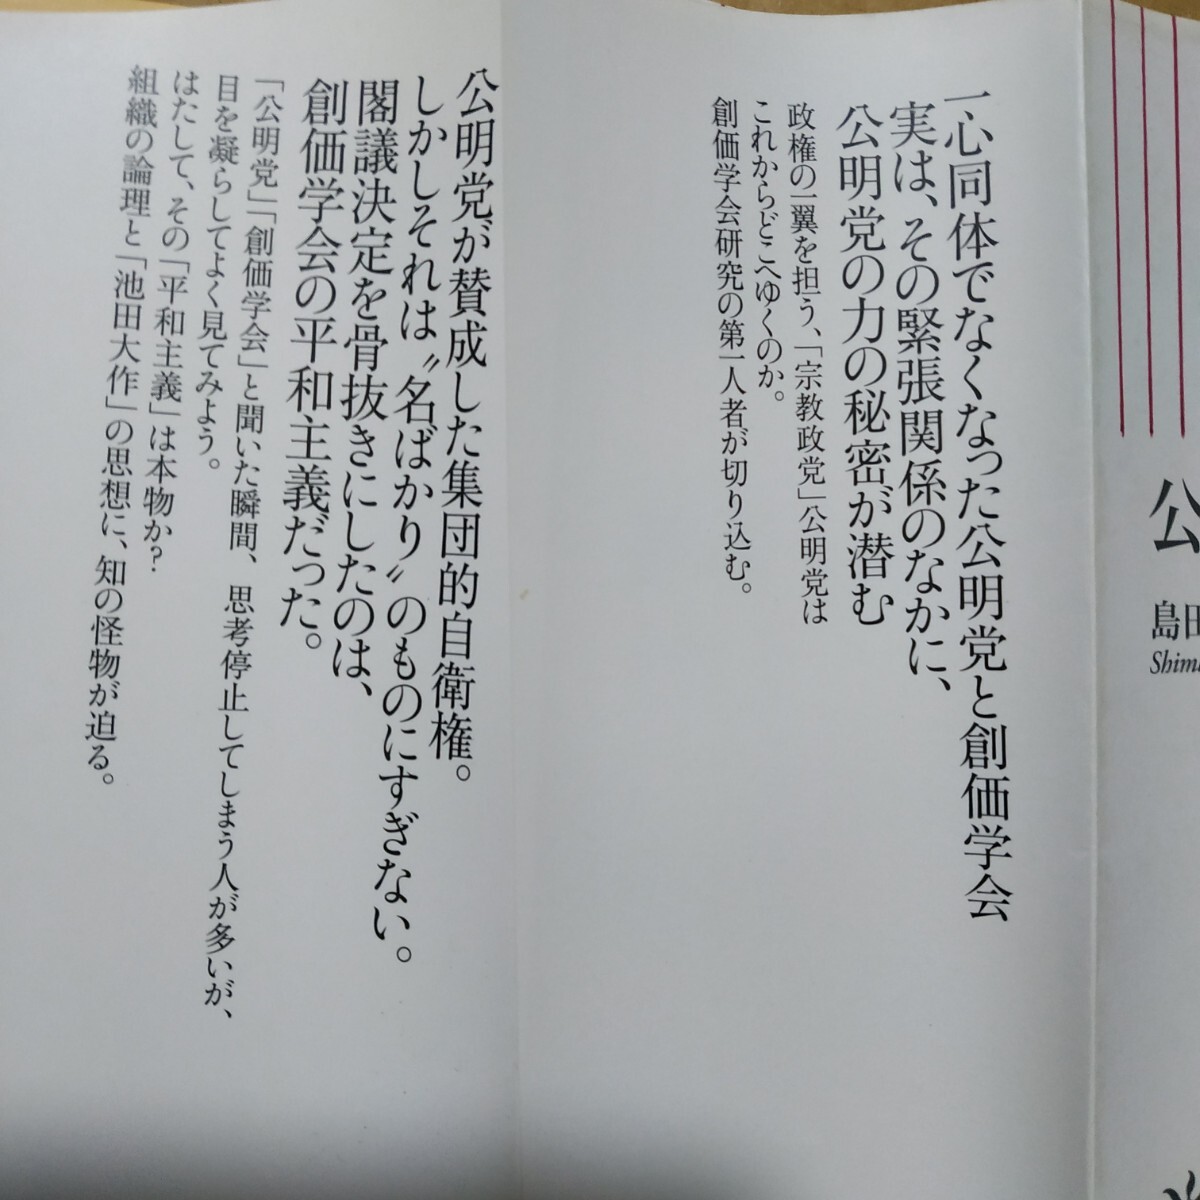 公
島田
Shima
一心同体でなくなった公明党と創価学会
実は、その緊張関係のなかに、
公明党の力の秘密が潜む
政権の一翼を担う、「宗教政党」公明党は
これからどこへゆくのか。
創価学会研究の第一人者が切り込む。
公明党が賛成した集団的自衛権。
しかしそれは〝名ばかり〟のものにすぎない。
閣議決定を骨抜きにしたのは、
創価学会の平和主義だった。
「公明党」「創価学会」と聞いた瞬間、思考停止してしまう人が多いが、
目を凝らしてよく見てみよう。
はたして、その「平和主義」は本物か？
組織の論理と「池田大作」の思想に、知の怪物が迫る。